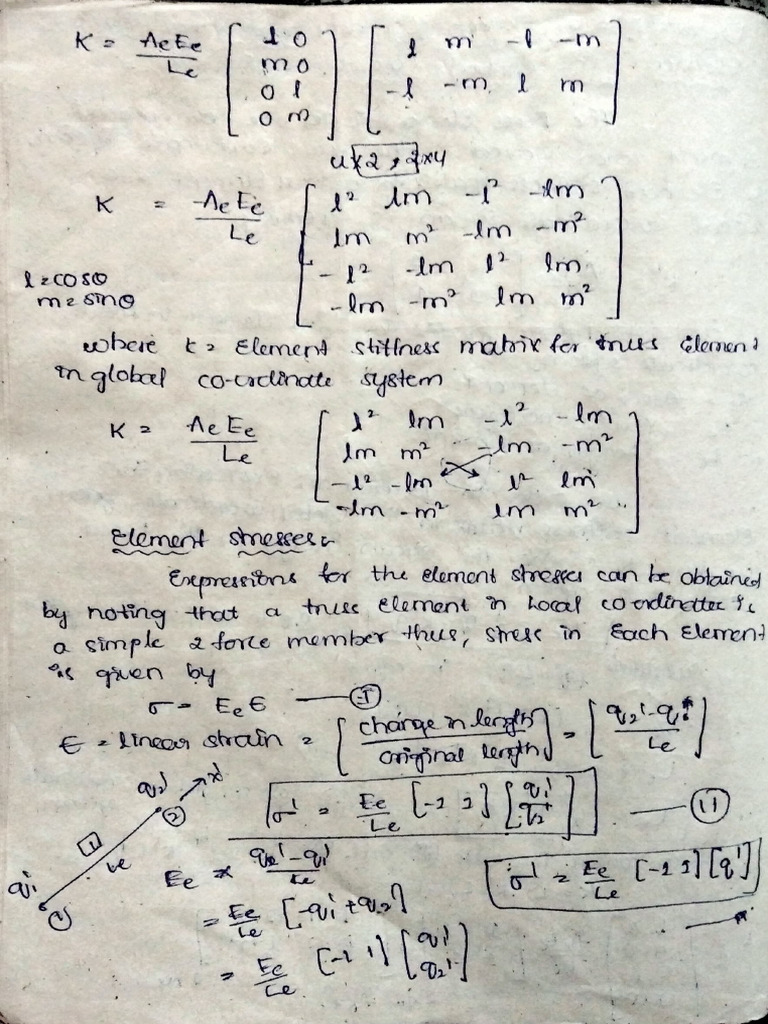 K = AeEe/Le [l 0 m 0 0 l 0 m] [l m -l -m -l -m l m]
4×2, 2×4
K = AeEe/Le [l² lm -l² -lm
lm m² -lm -m²
-l² -lm l² lm
-lm -m² lm m²]
l=cosθ
m=sinθ
where k = Element stiffness matrix for truss element
in global co-ordinate system
K = AeEe/Le [l² lm -l² -lm
lm m² -lm -m²
-l² -lm l² lm
-lm -m² lm m²]
Element stresses:
Expressions for the element stresses can be obtained
by noting that a truss element in Local co-ordinates is
a simple 2 force member thus, stress in Each Element
is given by
σ = Ee ϵ — I
ϵ = linear strain = [change in length/original length] = [q2'-q1'/Le]
q2' x'
2
1
Le
q1'
1
σ' = Ee/Le [-1 1] [q1' q2'] — 11
Ee × q2'-q1'/Le
σ' = Ee/Le [-1 1] [q']
= Ee/Le [-q1'+q2']
= Ee/Le [-1 1] [q1' q2']